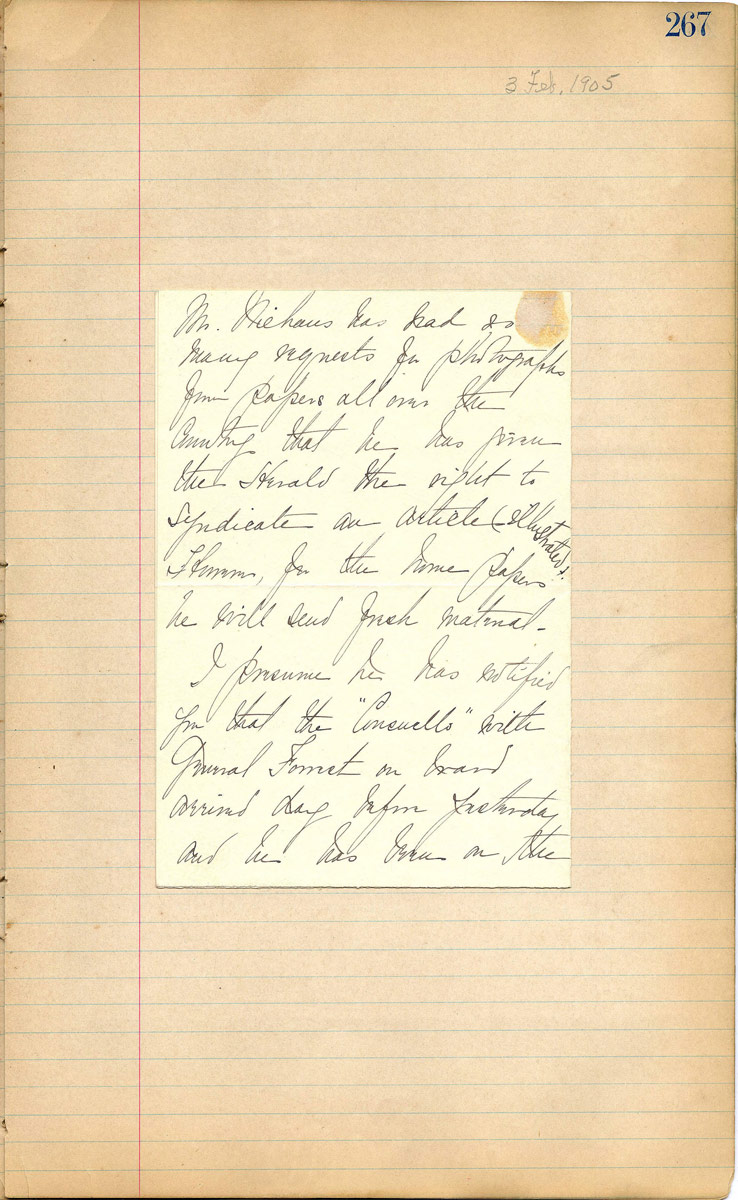 267
3 Feb. 1905
Mr. Niehaus has had so
many requests for photographs
from papers all over the
Country that he has given
the Herald the right to
Syndicate an article (illustrated).
However, for the home papers
he will send fresh material -
I presume he has notified
you that the "Consuello" with
General Forrest on board
arrived day before yesterday
and he has been on the